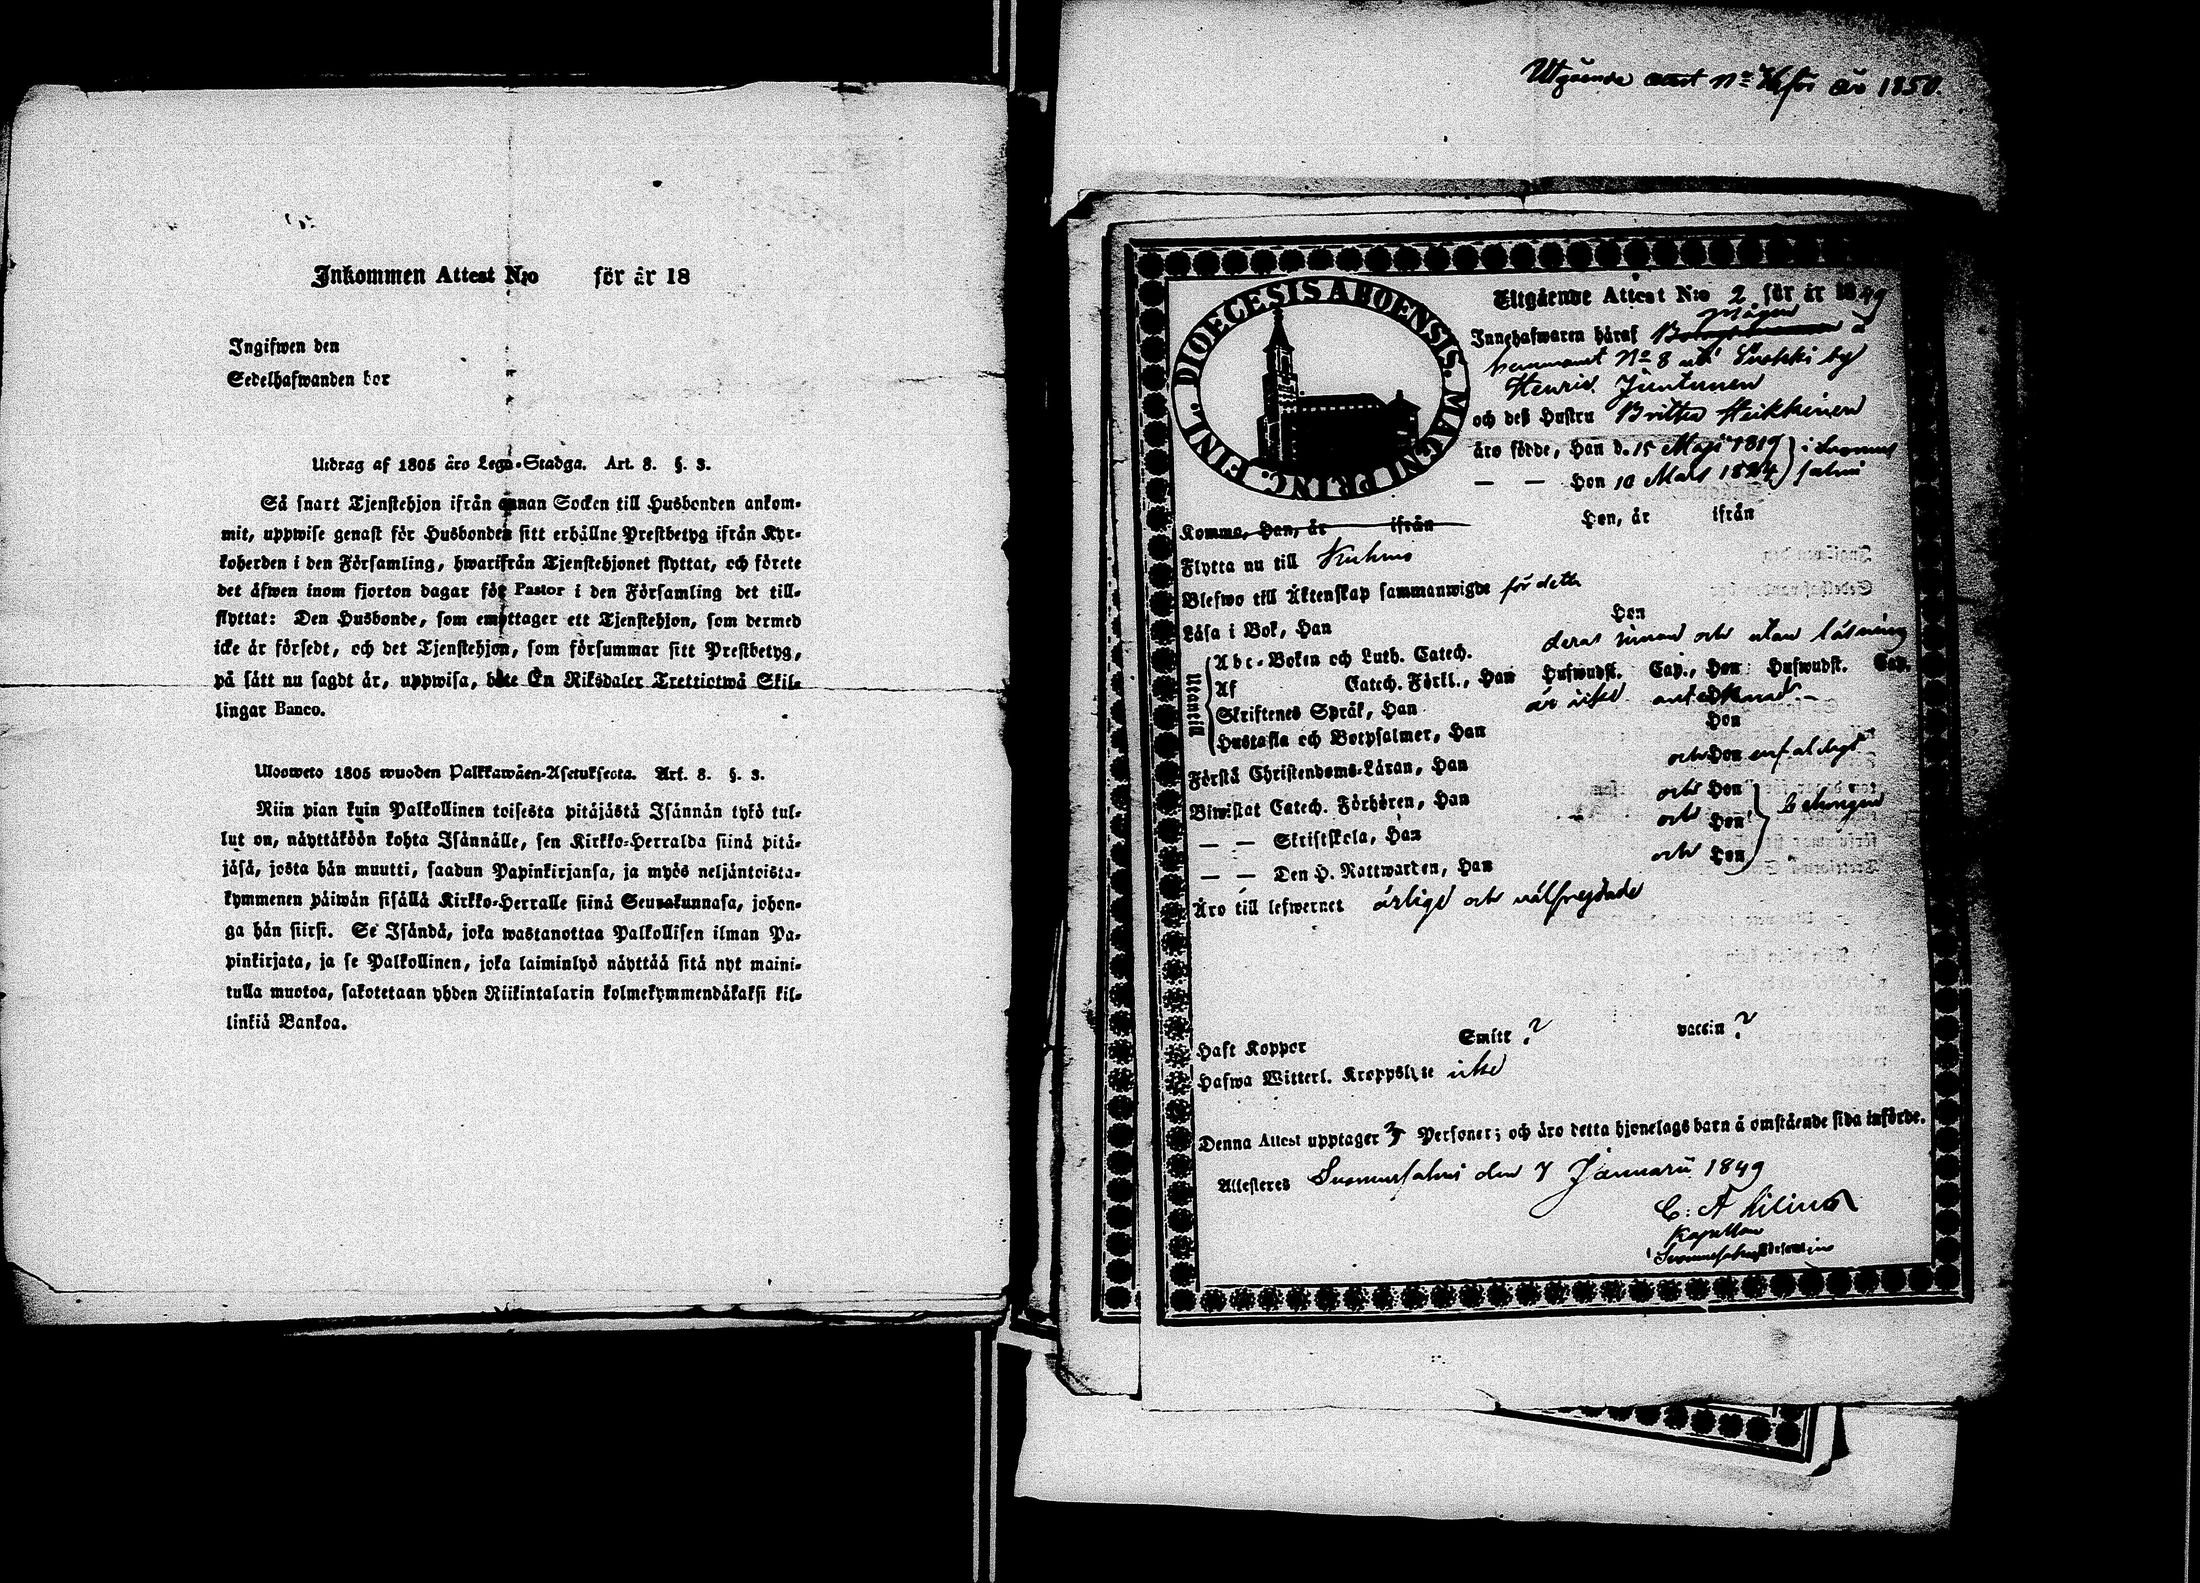 Inkommen Attest N:o för år 18
Ingifwen den
Sedelhafwanden bor
Utdrag af 1805 åro Lego-Stadga. Art. 8. §. 3.
Så snart Tjenstehjon ifrån annan Socken till Husbonden ankom-
mit, uppwise genast för Husbonden sitt erhållne Prestbetyg ifrån Kyr-
koherden i den Församling, hwarifrån Tjenstehjonet flyttat, och förete
det äfwen inom fjorton dagar för Pastor i den Församling det till-
flyttat: Den Husbonde, som emottager ett Tjenstehjon, som dermed
icke är försedt, och det Tjenstehjon, som försummar sitt Prestbetyg,
på sätt nu sagdt är, uppwisa, böte En Riksdaler Trettiotwå Skil-
lingar Banco.
Ulosweto 1805 wuoden Palkkawäen-Asetuksesta. Art. 8. §. 3.
Niin pian kuin Palkollinen toisesta pitäjästä Isännän tykö tul-
lut on, näyttäköön kohta Isännälle, sen Kirkko-Herralda siinä pitä-
jäsä, josta hän muutti, saadun Papinkirjansa, ja myös neljäntoista-
kymmenen päiwän sisällä Kirkko-Herralle siinä Seurakunnasa, johon-
ga hän siirsi. Se Isändä, joka wastanottaa Palkollisen ilman Pa-
pinkirjata, ja se Palkollinen, joka laiminlyö näyttää sitä nyt maini-
tulla muotoa, sakotetaan yhden Riikintalarin kolmekymmendäkaksi kil-
linkiä Bankoa.
Utgående attest N:o för år 1850.
DIOECESIS ABOENSIS. MAGNI PRINC. FINL.
Utgående Attest N:o 2 för år 1849
Innehafwaren häraf Mågen å
hemmanet No 8 uti by
Henric Juntunen
och deß Hustru Britta Heikkinen
äro födde, Han d. 15 Maji 1819 } i Suomus
— — Hon 10 Mars 1824 } salmi
Komme, Han, år ifrån Hon, år ifrån
Flytta nu till Kuhmo
Blefwo till Äktenskap sammanwigde för detta
Läsa i Bok, Han Hon
Utantill Abc-Boken och Luth. Catech. deras innan och utan läsning
Af Catech. Förkl., Han Hufwudst. Cap., Hon Hufwudst. Cap.
Skriftenes Språk, Han är icke antecknad. Hon
Hustafla och Botpsalmer, Han
Förstå Christendoms-Läran, Han och Hon enfaldigt
Biwistat Catech. Förhören, Han och Hon
— — Skriftskola, Han och Hon
— — Den H. Nattwarden, Han och Hon
Äro till lefwernet ärlige och wälfrejdade
Haft Koppor Smitt ? vaccin ?
Hafwa Witterl. Kroppslyte icke
Denna Attest upptager Personer; och äro detta hjonelags barn å omstående sida införde.
Attesteres Suomussalmi den 7 Januarii 1849
C: A
Kapellan
i